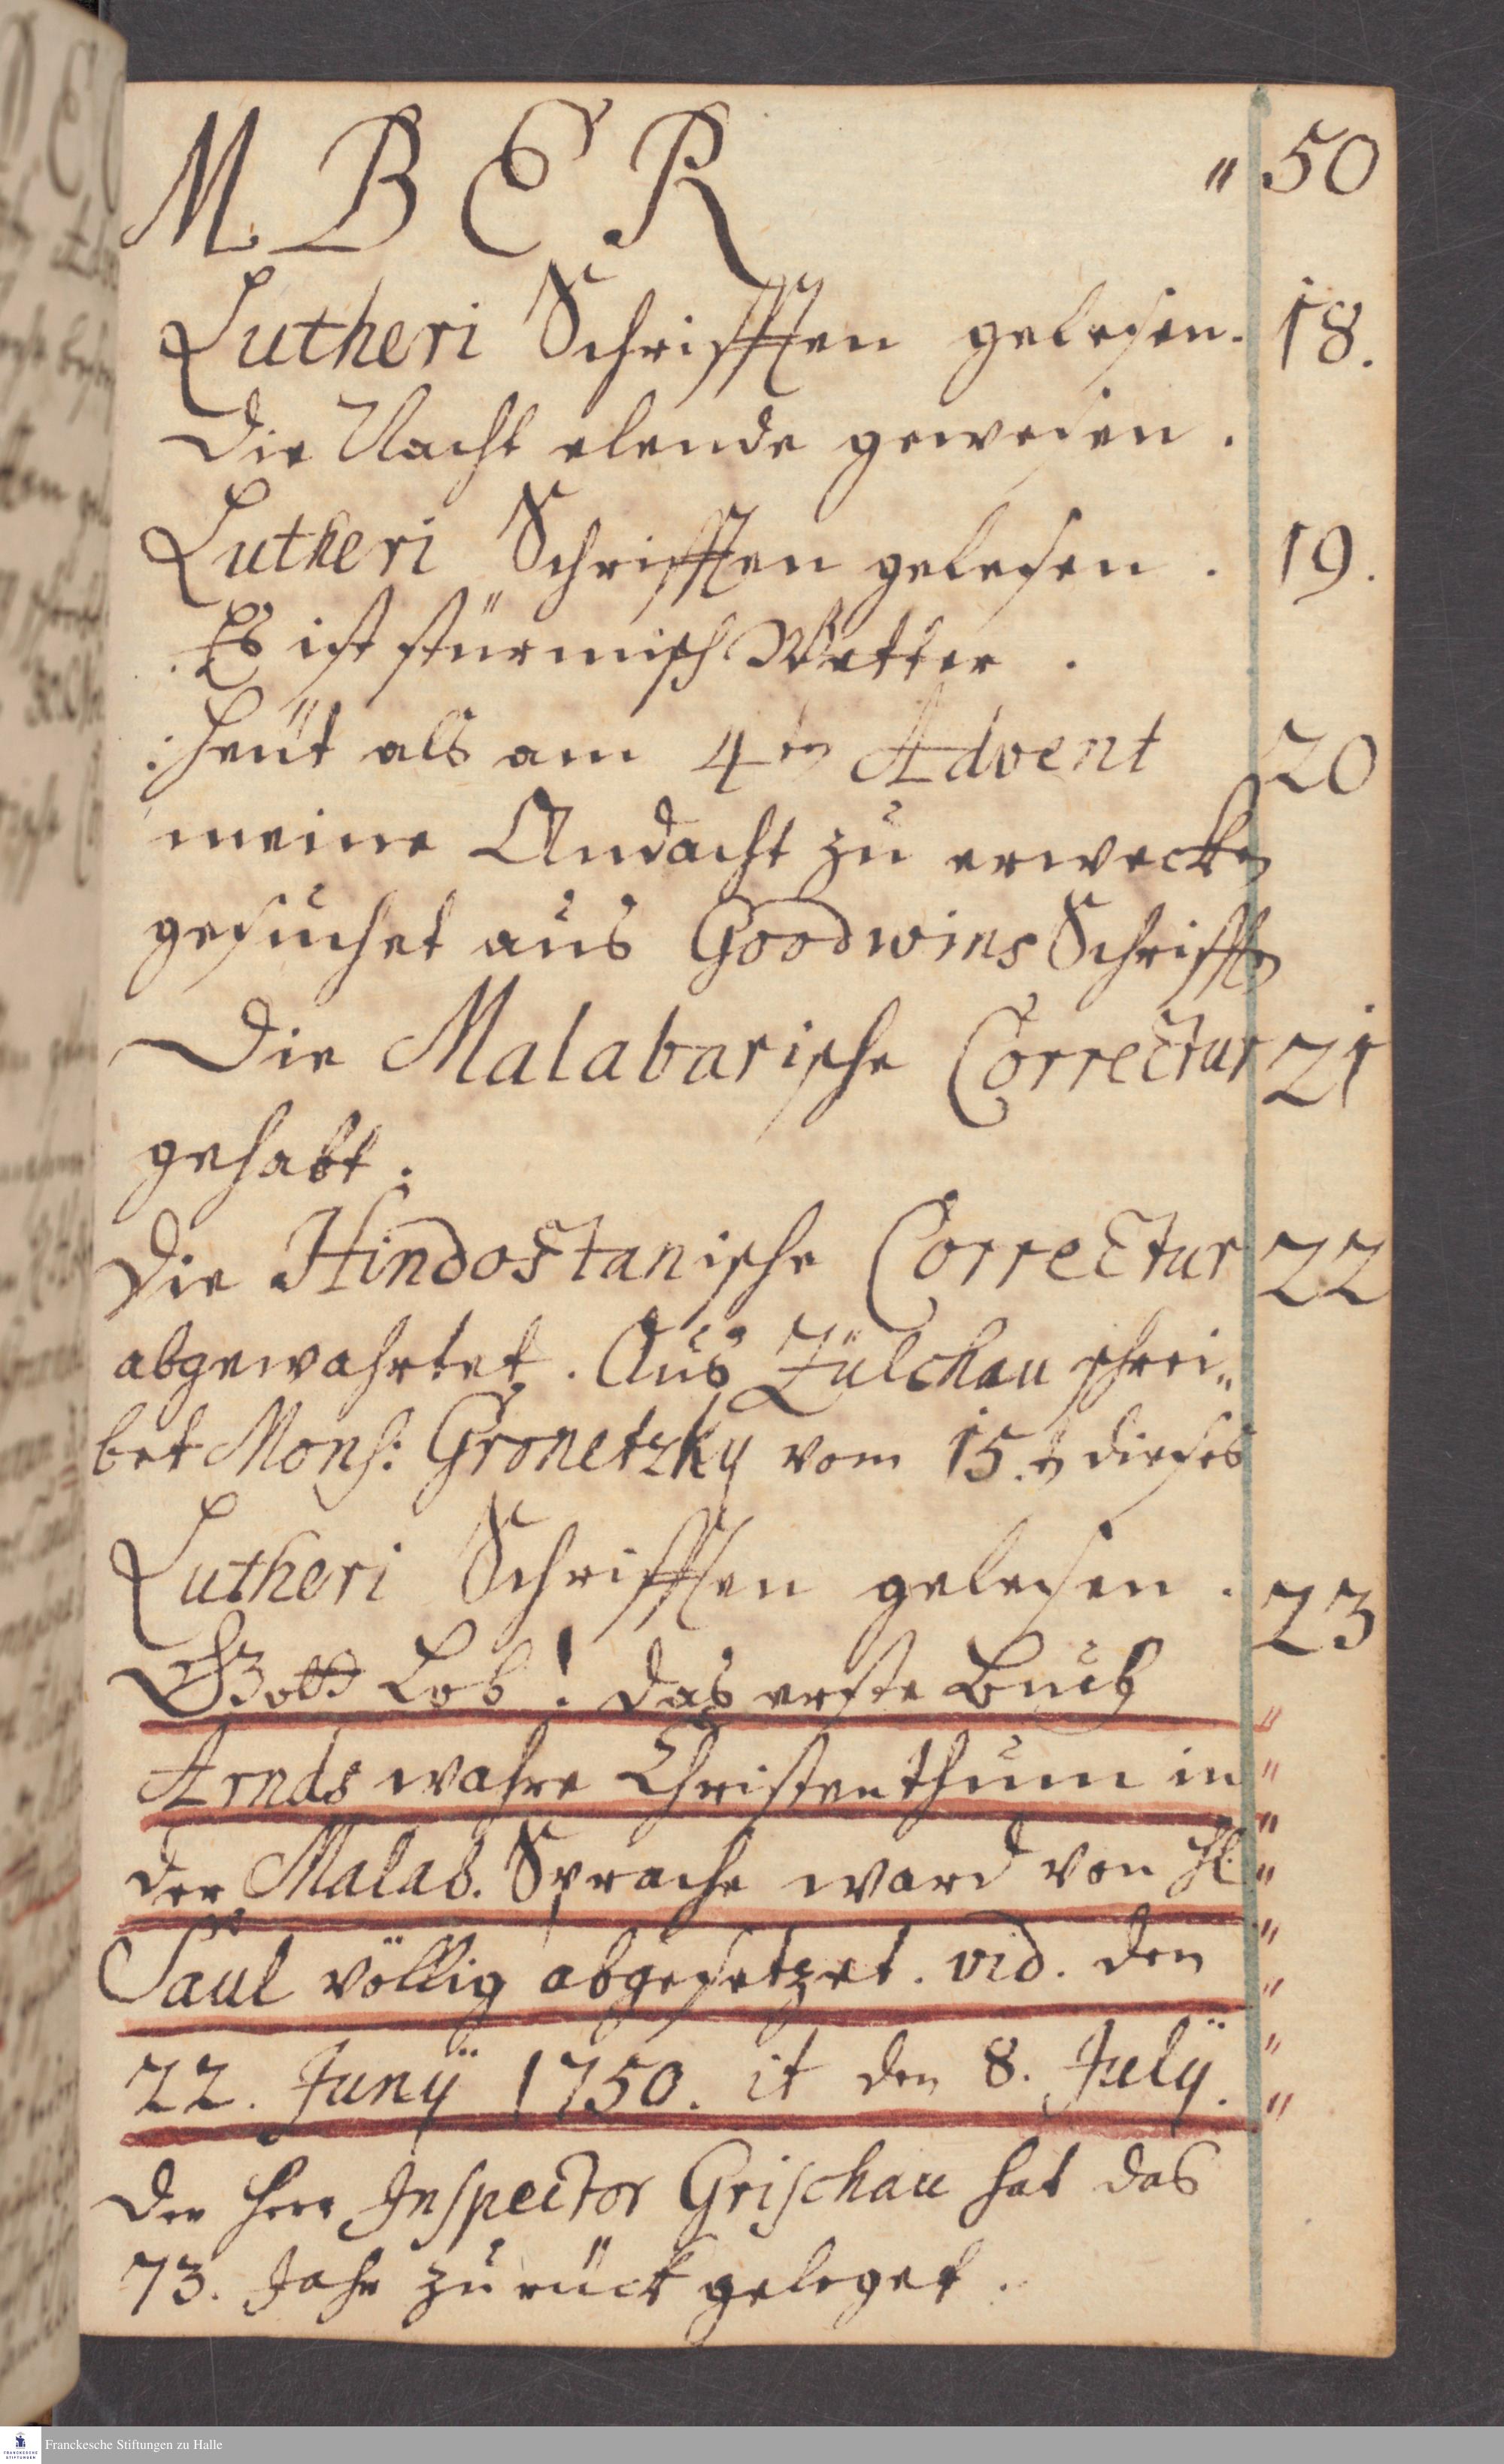 M B E R " 50
Lutheri Schrifften gelesen. 18.
Die Nacht elende gewesen.
Lutheri Schrifften gelesen. 19.
Es ist stürmisch Wetter.
Heüt als am 4ten Advent 20
meine Andacht zu erwecken
gesuchet aus Goodwins Schrifften
Die Malabarische Correctur 21
gehabt.
Die Hindostanische Correctur 22
abgewahrtet. Aus Zülchau schrei„
bet Mons: Gronetzky vom 15.ten dieses
Lutheri Schrifften gelesen. 23
Gott Lob! das erste Buch
Arnds wahre Christenthum in
der Malab. Sprache ward von H.
Saul völlig abgesetzet. vid. den
22. Junÿ 1750. it den 8. Julÿ.
Der Herr Inspector Grischau hat das
73. Jahr zurück geleget.
Franckesche Stiftungen zu Halle